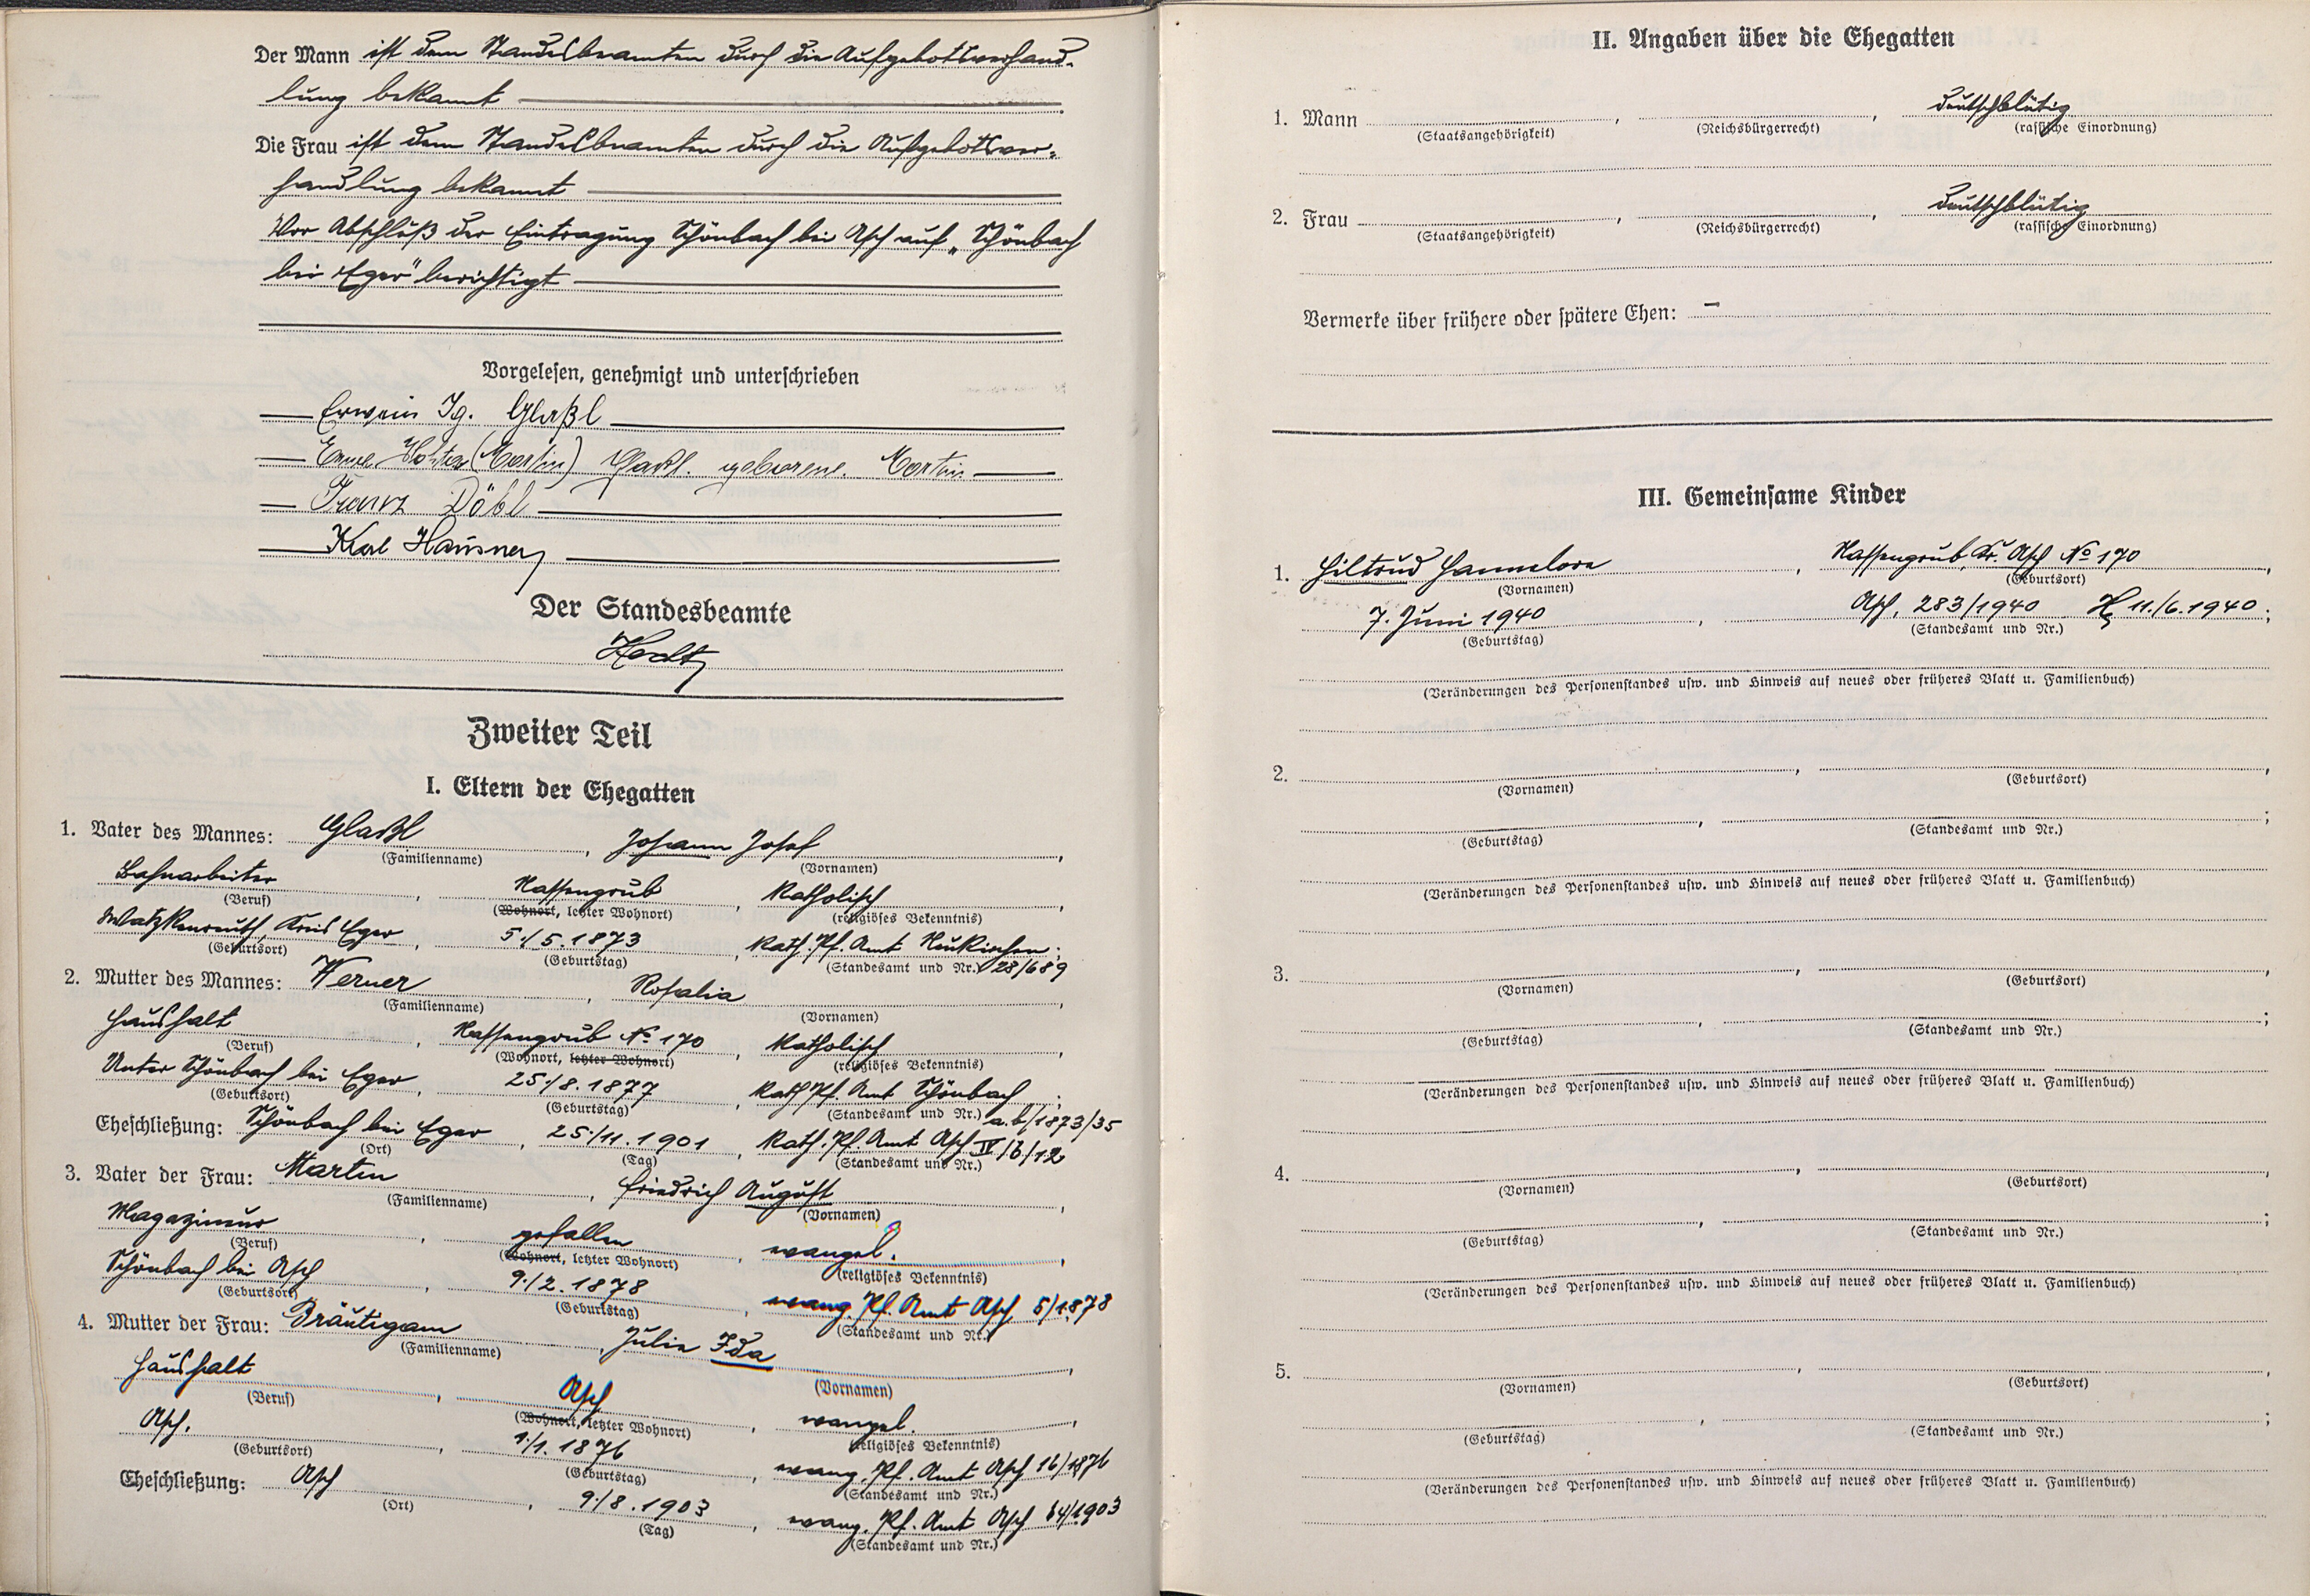 Der Mann ist dem Standesbeamten durch die Aufgebotsverhand-
lung bekannt
Die Frau ist dem Standesbeamten durch die Aufgebotsver-
handlung bekannt
Vor Abschluß der Eintragung Schönbach bei Asch auf „Schönbach
bei Eger" berichtigt
Vorgelesen, genehmigt und unterschrieben
Erwin Jg. Glaßl
(Martin) Glaßl. geborene. Martin.
Franz Döbl
Karl Hausner
Der Standesbeamte
Hecht
Zweiter Teil
I. Eltern der Ehegatten
1. Vater des Mannes: Glaßl, Johann Josef,
(Familienname) (Vornamen)
Bahnarbeiter, Nassengrub, katholisch,
(Beruf) (Wohnort, letzter Wohnort) (religiöses Bekenntnis)
Watzkenreuth, Kreis Eger, 5./5.1873, kath. Pf. Amt Neukirchen;
(Geburtsort) (Geburtstag) (Standesamt und Nr.) 28/689
2. Mutter des Mannes: Werner, Rosalia,
(Familienname) (Vornamen)
Haushalt, Nassengrub No 170, katholisch,
(Beruf) (Wohnort, letzter Wohnort) (religiöses Bekenntnis)
Unter Schönbach bei Eger, 25./8.1877, kath. Pf. Amt Schönbach;
(Geburtsort) (Geburtstag) (Standesamt und Nr.) a.b/1873/35
Eheschließung: Schönbach bei Eger, 25./11.1901, kath. Pf. Amt Asch IV/6/12
(Ort) (Tag) (Standesamt und Nr.)
3. Vater der Frau: Martin, Friedrich August,
(Familienname) (Vornamen)
Magazineur, gefallen, evangel.,
(Beruf) (Wohnort, letzter Wohnort) (religiöses Bekenntnis)
Schönbach bei Asch, 9./2.1878, evang. Pf. Amt Asch 5/1878
(Geburtsort) (Geburtstag) (Standesamt und Nr.)
4. Mutter der Frau: Bräutigam, Julie Ida,
(Familienname) (Vornamen)
Haushalt, Asch, evangel.,
(Beruf) (Wohnort, letzter Wohnort) (religiöses Bekenntnis)
Asch., 1./1.1876, evang. Pf. Amt Asch 16/1876
(Geburtsort) (Geburtstag) (Standesamt und Nr.)
Eheschließung: Asch, 9./8.1903, evang. Pf. Amt Asch 64/1903
(Ort) (Tag) (Standesamt und Nr.)
II. Angaben über die Ehegatten
1. Mann, , deutschblütig
(Staatsangehörigkeit) (Reichsbürgerrecht) (rassische Einordnung)
2. Frau, , deutschblütig
(Staatsangehörigkeit) (Reichsbürgerrecht) (rassische Einordnung)
Vermerke über frühere oder spätere Ehen: –
III. Gemeinsame Kinder
1. Hiltrud Hannelore, Nassengrub, Kr. Asch No 170,
(Vornamen) (Geburtsort)
7. Juni 1940, Asch, 283/1940 H 11./6.1940;
(Geburtstag) (Standesamt und Nr.)
(Veränderungen des Personenstandes usw. und Hinweis auf neues oder früheres Blatt u. Familienbuch)
2. , ,
(Vornamen) (Geburtsort)
, ;
(Geburtstag) (Standesamt und Nr.)
(Veränderungen des Personenstandes usw. und Hinweis auf neues oder früheres Blatt u. Familienbuch)
3. , ,
(Vornamen) (Geburtsort)
, ;
(Geburtstag) (Standesamt und Nr.)
(Veränderungen des Personenstandes usw. und Hinweis auf neues oder früheres Blatt u. Familienbuch)
4. , ,
(Vornamen) (Geburtsort)
, ;
(Geburtstag) (Standesamt und Nr.)
(Veränderungen des Personenstandes usw. und Hinweis auf neues oder früheres Blatt u. Familienbuch)
5. , ,
(Vornamen) (Geburtsort)
, ;
(Geburtstag) (Standesamt und Nr.)
(Veränderungen des Personenstandes usw. und Hinweis auf neues oder früheres Blatt u. Familienbuch)